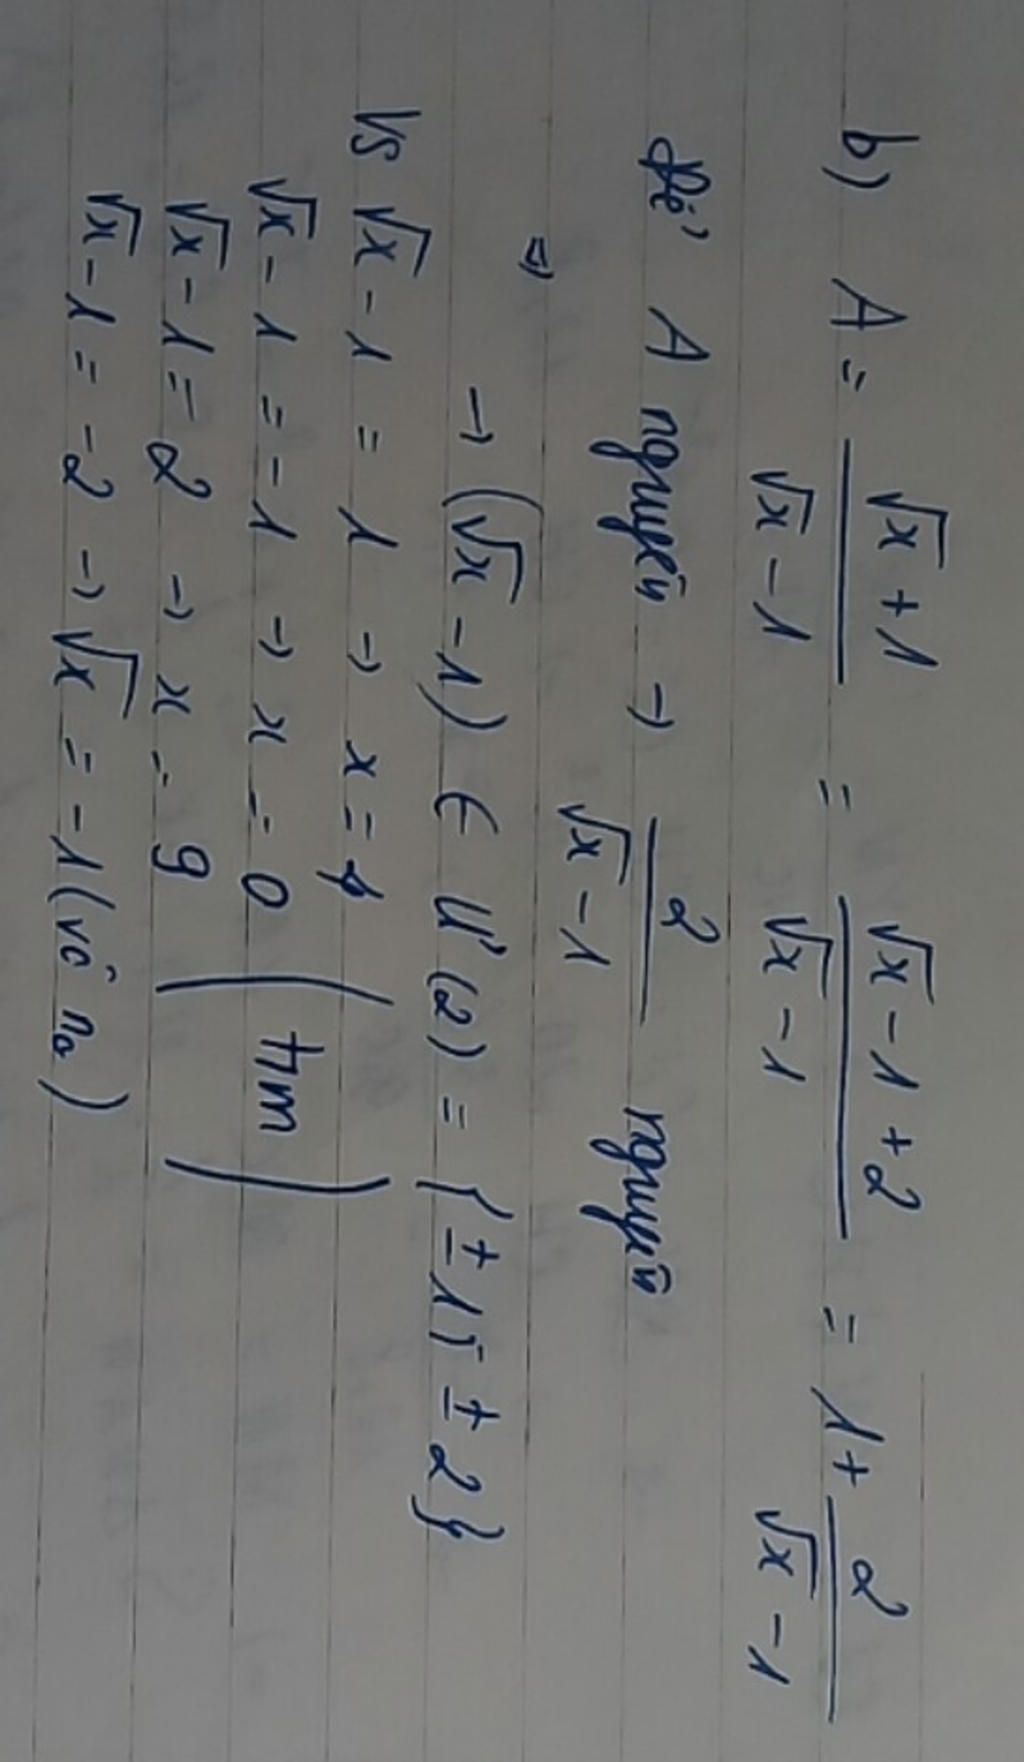 b) A = (√x + 1)/(√x - 1) = (√x - 1 + 2)/(√x - 1) = 1 + 2/(√x - 1)
Để A nguyên → 2/(√x - 1) nguyên
⇒
→ (√x - 1) ∈ Ư(2) = {±1; ±2}
Vs √x - 1 = 1 → x = 4
√x - 1 = -1 → x = 0 (tm)
√x - 1 = 2 → x = 9
√x - 1 = -2 → √x = -1 (vô no)